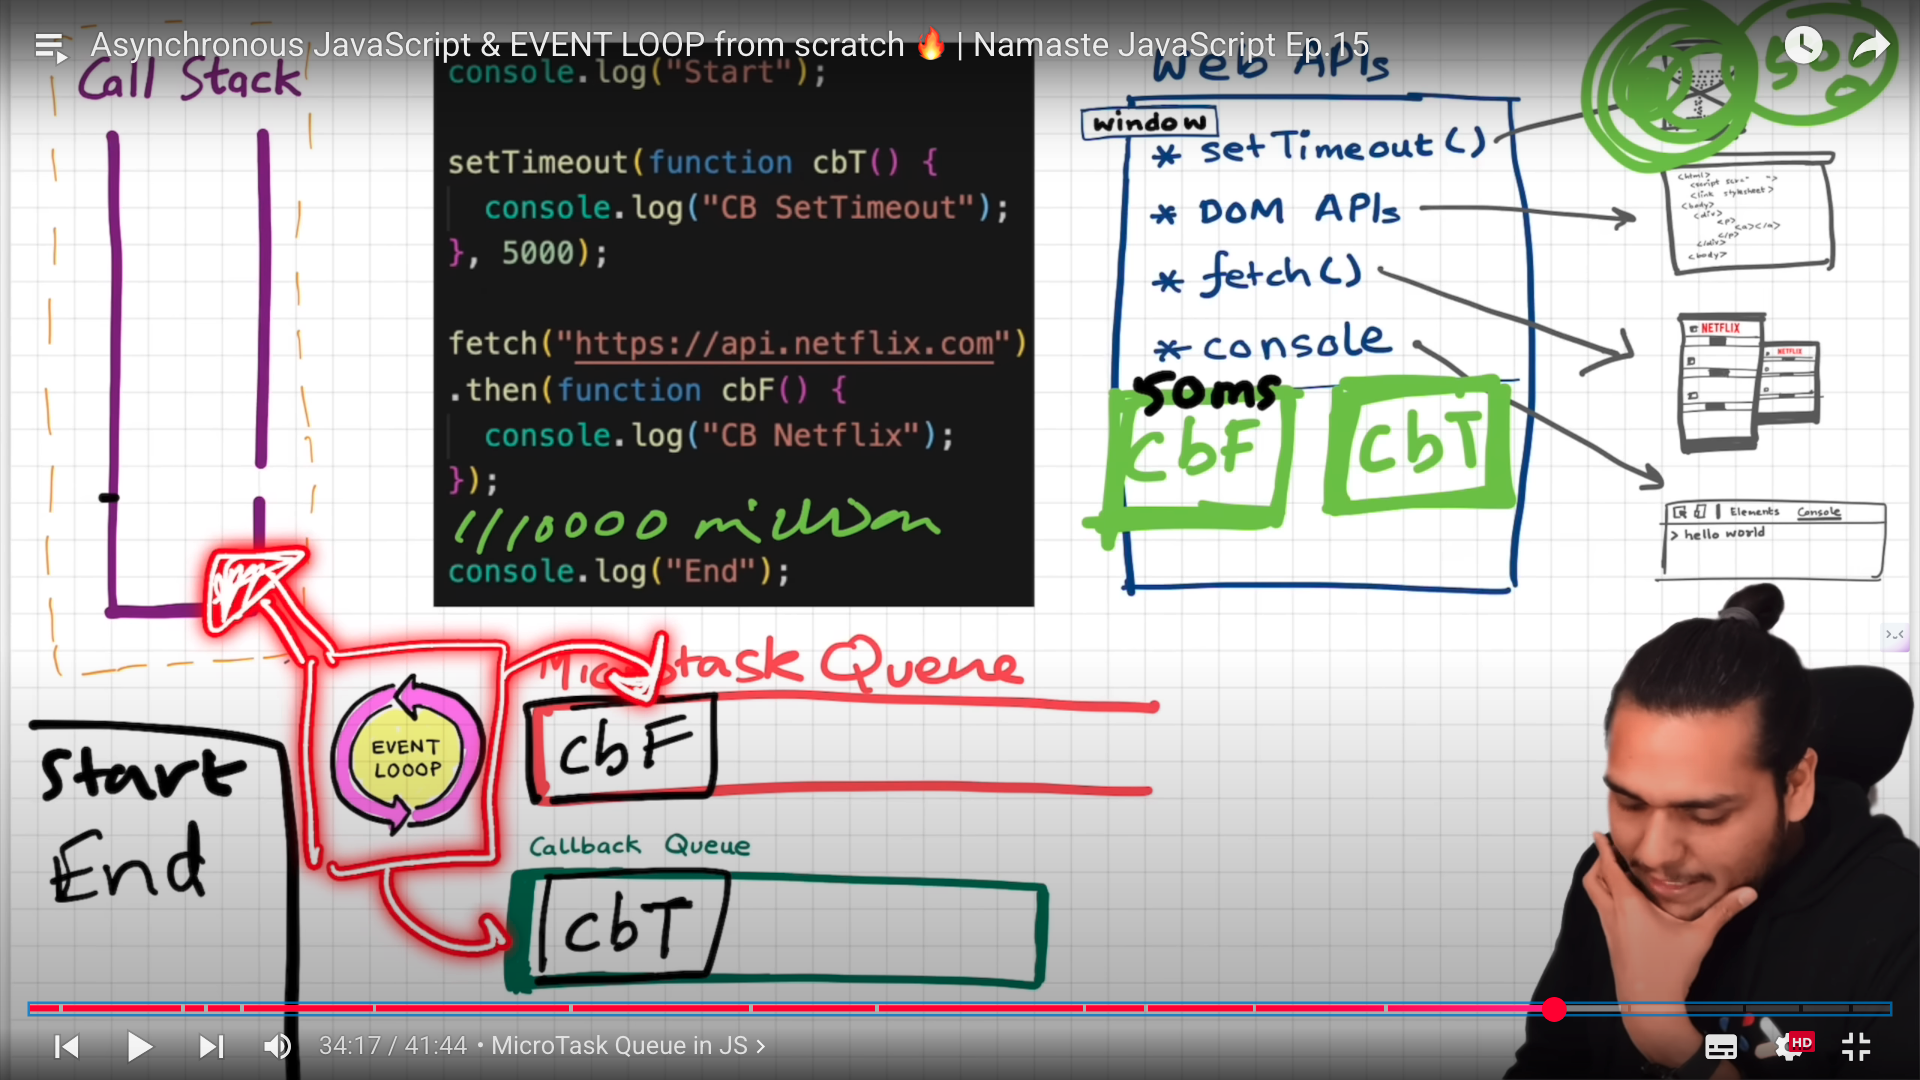 Asynchronous JavaScript & EVENT LOOP from scratch 🔥 | Namaste JavaScript Ep.15
Call Stack
console.log("Start");
setTimeout(function cbT() {
console.log("CB SetTimeout");
}, 5000);
fetch("https://api.netflix.com")
.then(function cbF() {
console.log("CB Netflix");
});
// 10000 million
console.log("End");
Web APIs
window
* setTimeout()
* DOM APIs
* fetch()
* console
50ms
CbF
CbT
500
0
<html>
<link stylesheet>
<body>
<div>
<p>
<a></a>
</p>
</div>
<body>
NETFLIX
NETFLIX
Elements Console
> hello world
Microtask Queue
EVENT
LOOOP
cbF
Callback Queue
cbT
Start
End
34:17 / 41:44 • MicroTask Queue in JS >
HD